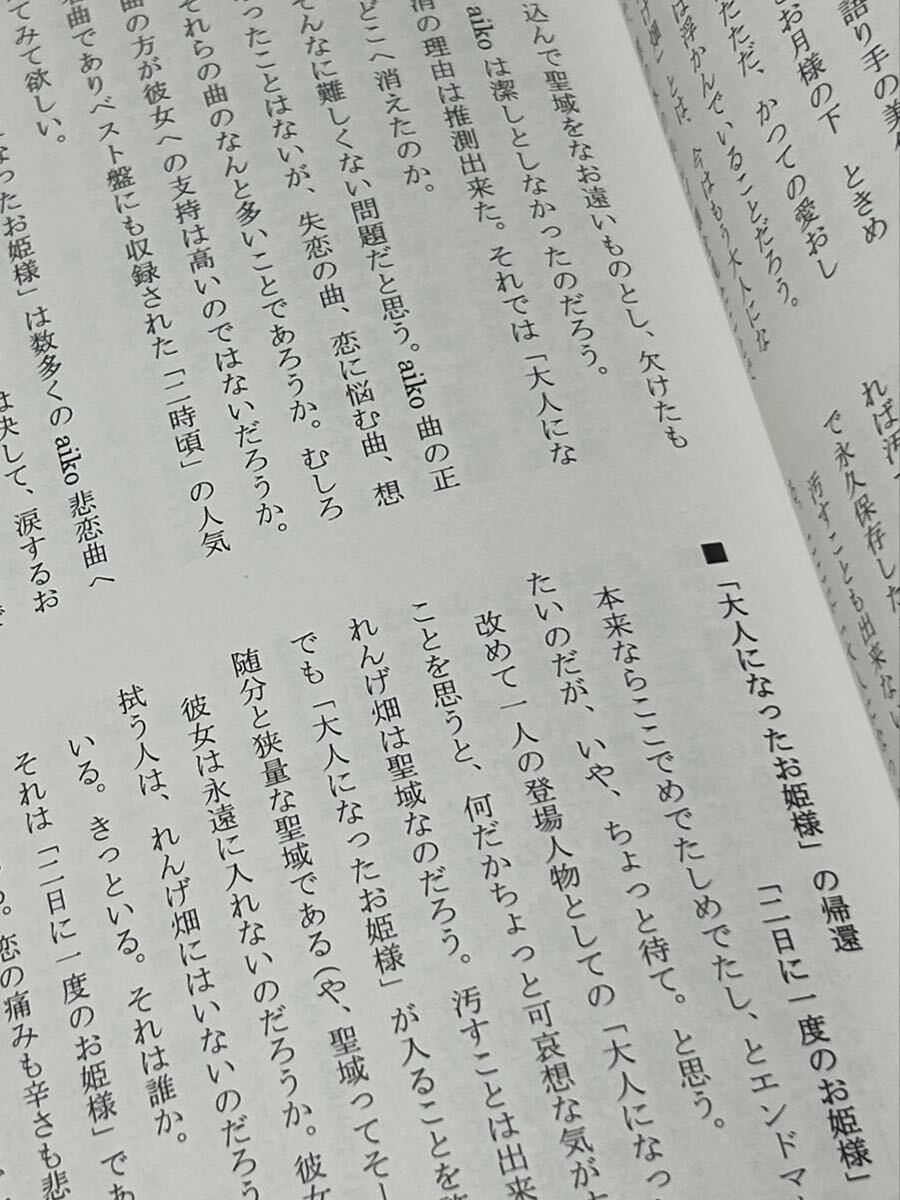 語り手の美
お月様の下　ときめ
ただ、かつての愛おし
は浮かんでいることだろう。
今はもう大人にな
込んで聖域をなお遠いものとし、欠けたも
aikoは潔しとしなかったのだろう。
消の理由は推測出来た。それでは「大人にな
どこへ消えたのか。
そんなに難しくない問題だと思う。aiko曲の正
ったことはないが、失恋の曲、恋に悩む曲、想
それらの曲のなんと多いことであろうか。むしろ
曲の方が彼女への支持は高いのではないだろうか。
名曲でありベスト盤にも収録された「二時頃」の人気
てみて欲しい。
なったお姫様」は数多くのaiko悲恋曲へ
は決して、涙するお
れば汚
で永久保存した
汚すことも出来ない
■「大人になったお姫様」の帰還　「二日に一度のお姫様」
本来ならここでめでたしめでたし、とエンドマ
たいのだが、いや、ちょっと待て。と思う。
改めて一人の登場人物としての「大人になっ
ことを思うと、何だかちょっと可哀想な気が
れんげ畑は聖域なのだろう。汚すことは出来
でも「大人になったお姫様」が入ることを
随分と狭量な聖域である(や、聖域ってそー
彼女は永遠に入れないのだろうか。彼
拭う人は、れんげ畑にはいないのだろう
いる。きっといる。それは誰か。
それは「二日に一度のお姫様」であ
恋の痛みも辛さも悲